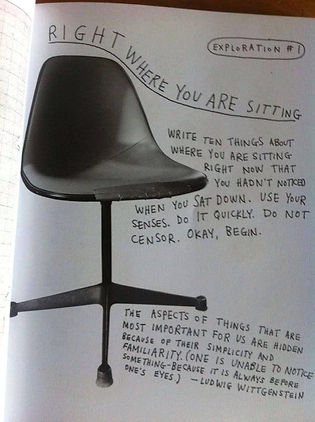 RIGHT WHERE YOU ARE SITTING
EXPLORATION #1
WRITE TEN THINGS ABOUT
WHERE YOU ARE SITTING
RIGHT NOW THAT
YOU HADN'T NOTICED
WHEN YOU SAT DOWN. USE YOUR
SENSES. DO IT QUICKLY. DO NOT
CENSOR. OKAY, BEGIN.
THE ASPECTS OF THINGS THAT ARE
MOST IMPORTANT FOR US ARE HIDDEN
BECAUSE OF THEIR SIMPLICITY AND
FAMILIARITY. (ONE IS UNABLE TO NOTICE
SOMETHING-BECAUSE IT IS ALWAYS BEFORE
ONE'S EYES) —LUDWIG WITTGENSTEIN